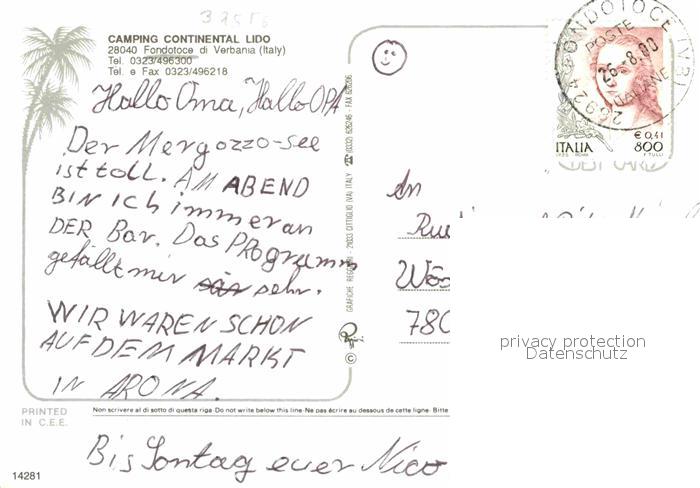 37556
CAMPING CONTINENTAL LIDO
28040 Fondotoce di Verbania (Italy)
Tel. 0323/496300
Tel. e Fax 0323/496218
Hallo Oma, Hallo OPA
Der Mergozzo-see
ist toll. AM ABEND
BIN ich immer an
DER Bar. Das PROgramm
gefällt mir sehr.
WIR WAREN SCHON
AUF DEM MARKT
IN ARONA.
PRINTED
IN C.E.E.
Non scrivere al di sotto di questa riga-Do not write below this line-Ne pas écrire au dessous de cette ligne- Bitte
Bis Sontag euer Nico
14281
GRAFICHE REGGIORI - 21033 CITTIGLIO (VA) ITALY ☎ (0332) 626245 - FAX 626206
©
28924 FONDOTOCE (VB)
POSTE
26-8.00
ITALIANE
€ 0,41
ITALIA 800
POST CARD
An
780
privacy protection
Datenschutz